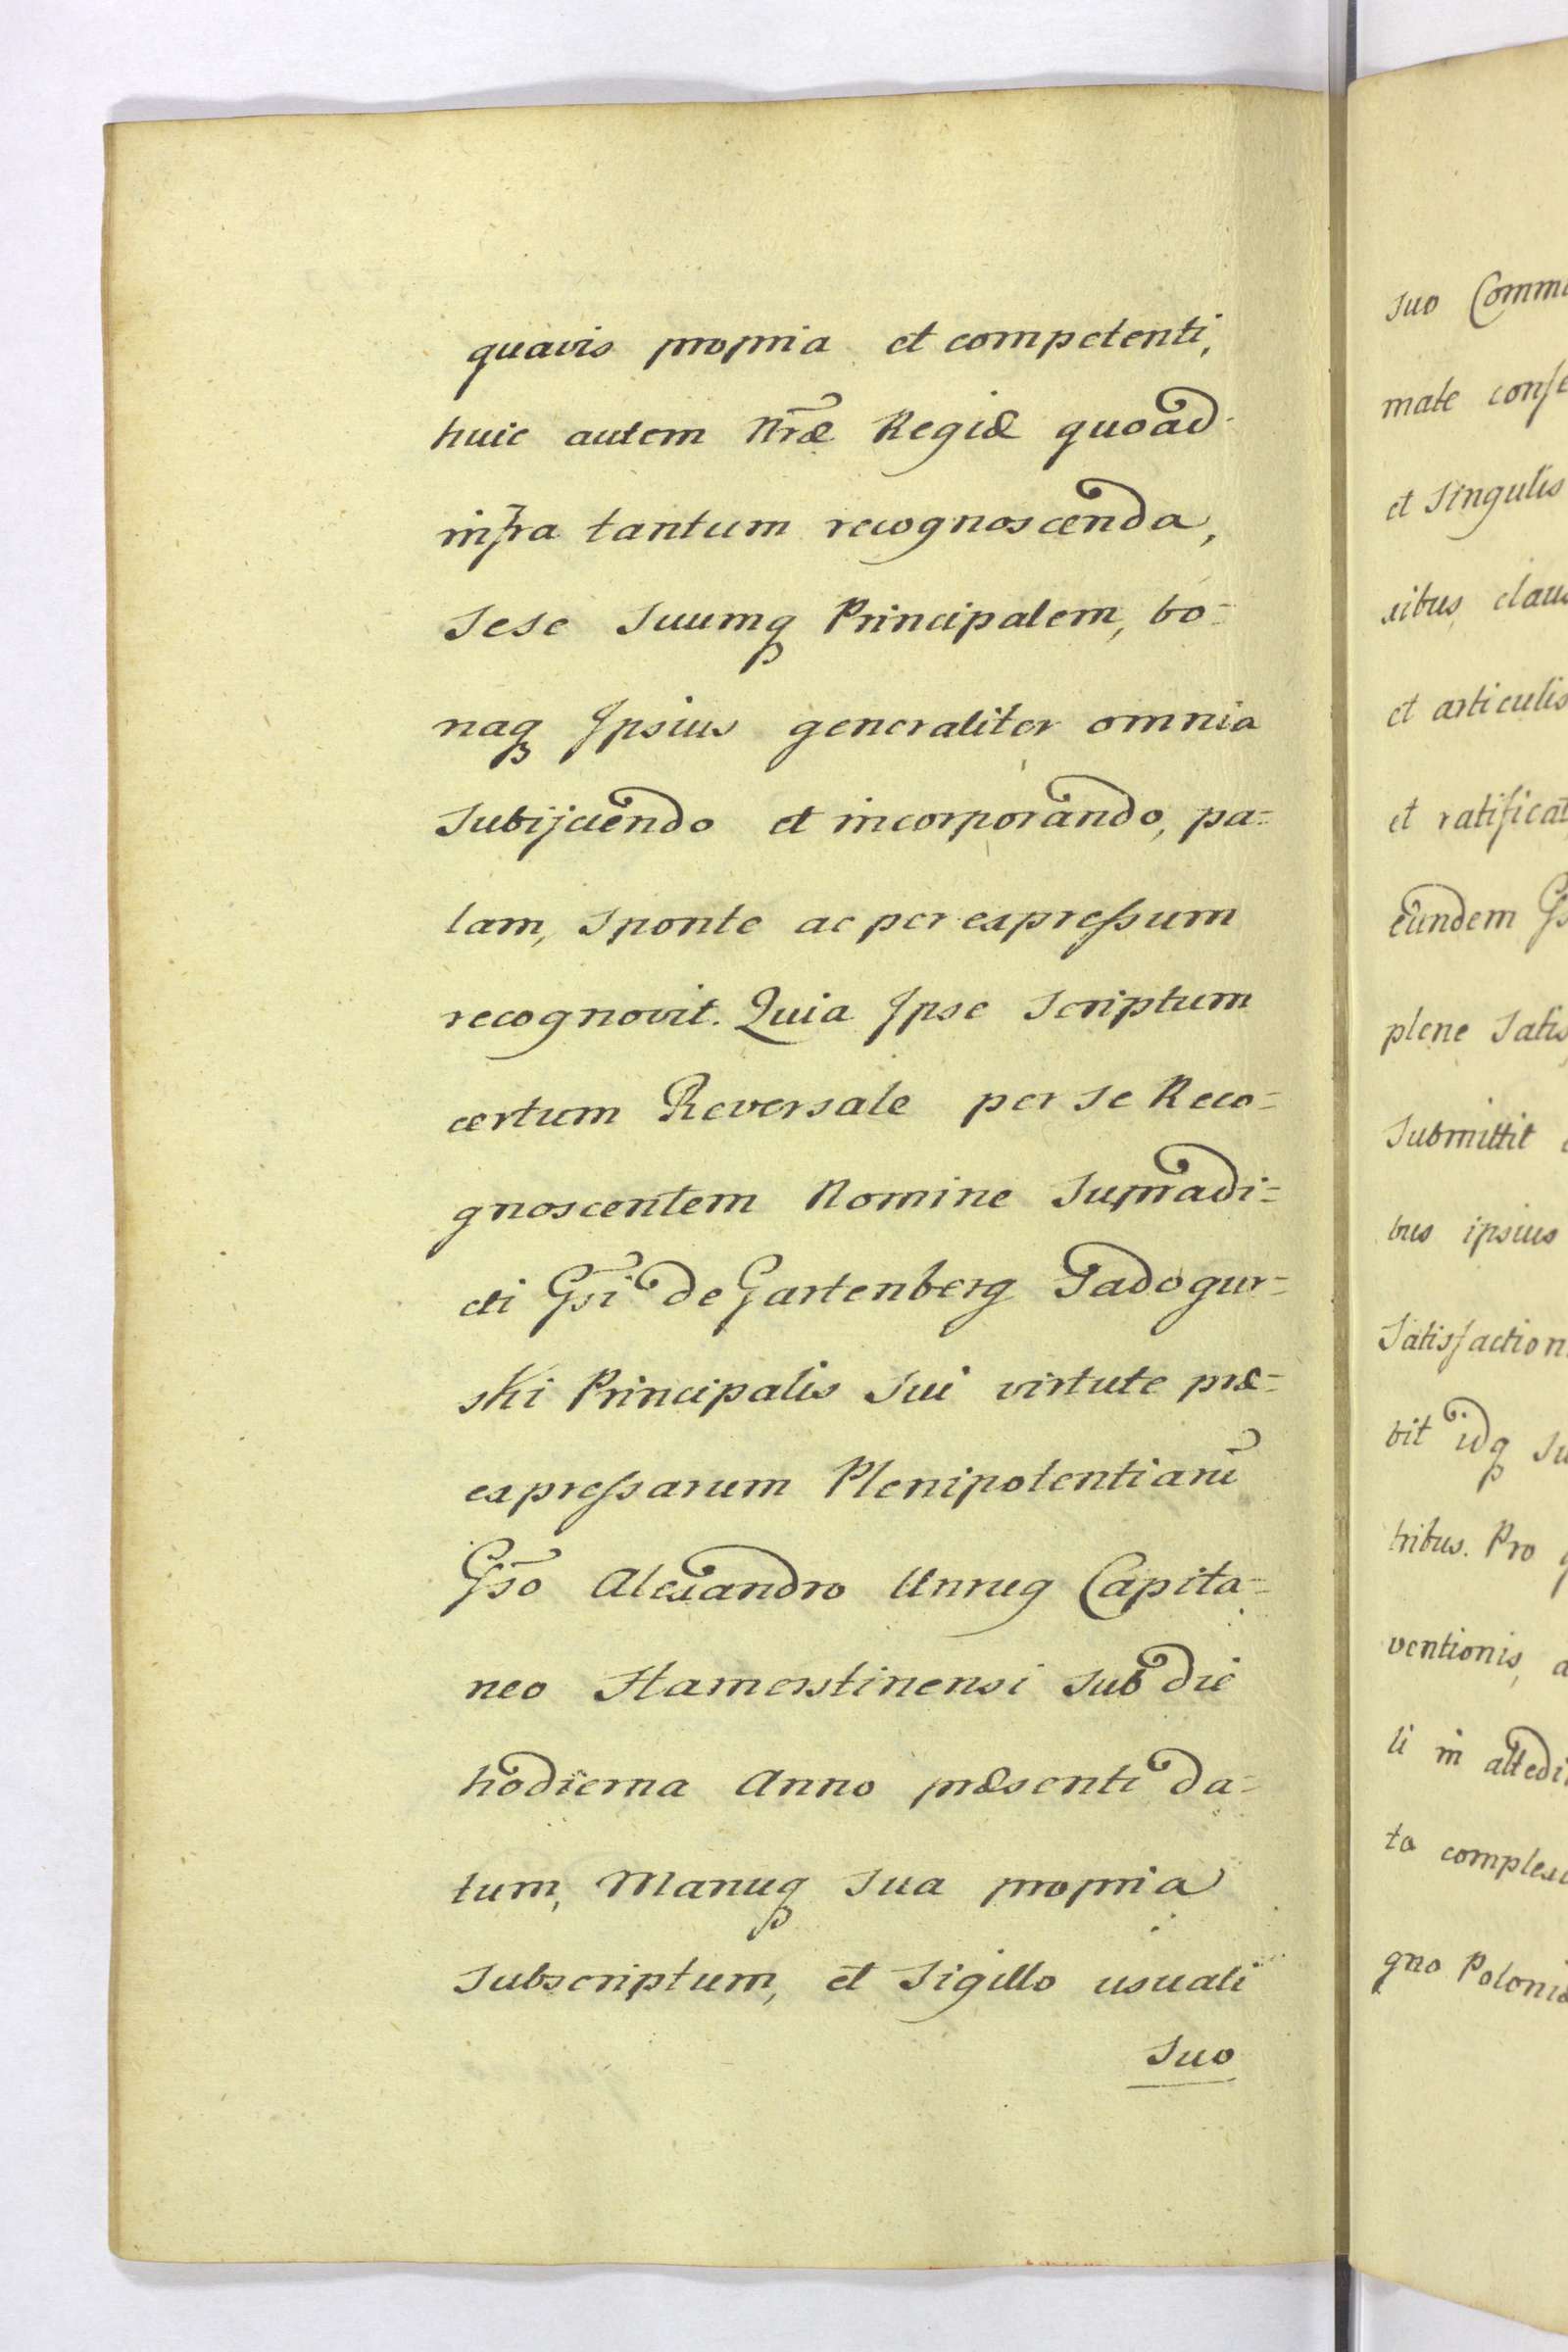 quavis propria et competenti,
huic autem Nrae Regiae quoad
infra tantum recognoscenda,
Sese Suumq Principalem, bo=
naq Ipsius generaliter omnia
Subijciendo et incorporando, pa=
lam, Sponte ac per expressum
recognovit. Quia Ipse Scriptum
certum Reversale per Se Reco=
gnoscentem Nomine Supradi=
cti Gsi de Gartenberg Sadogur=
ski Principalis Sui virtute prae=
expressarum Plenipotentiarū
Gso Alexandro Unrug Capita=
neo Hamerstinensi Sub die
hodierna Anno praesenti da=
tum, Manuq Sua propria
Subscriptum, et Sigillo usuali
Suo
suo Comm
mate conse
et Singulis
xibus, clau
et articulis
et ratificat
eundem Gs
plene Satis
Submittit
bus ipsius
Satisfaction
bit idq Su
tribus. Pro
ventionis, a
li in attedi
ta complex
gno Poloniae